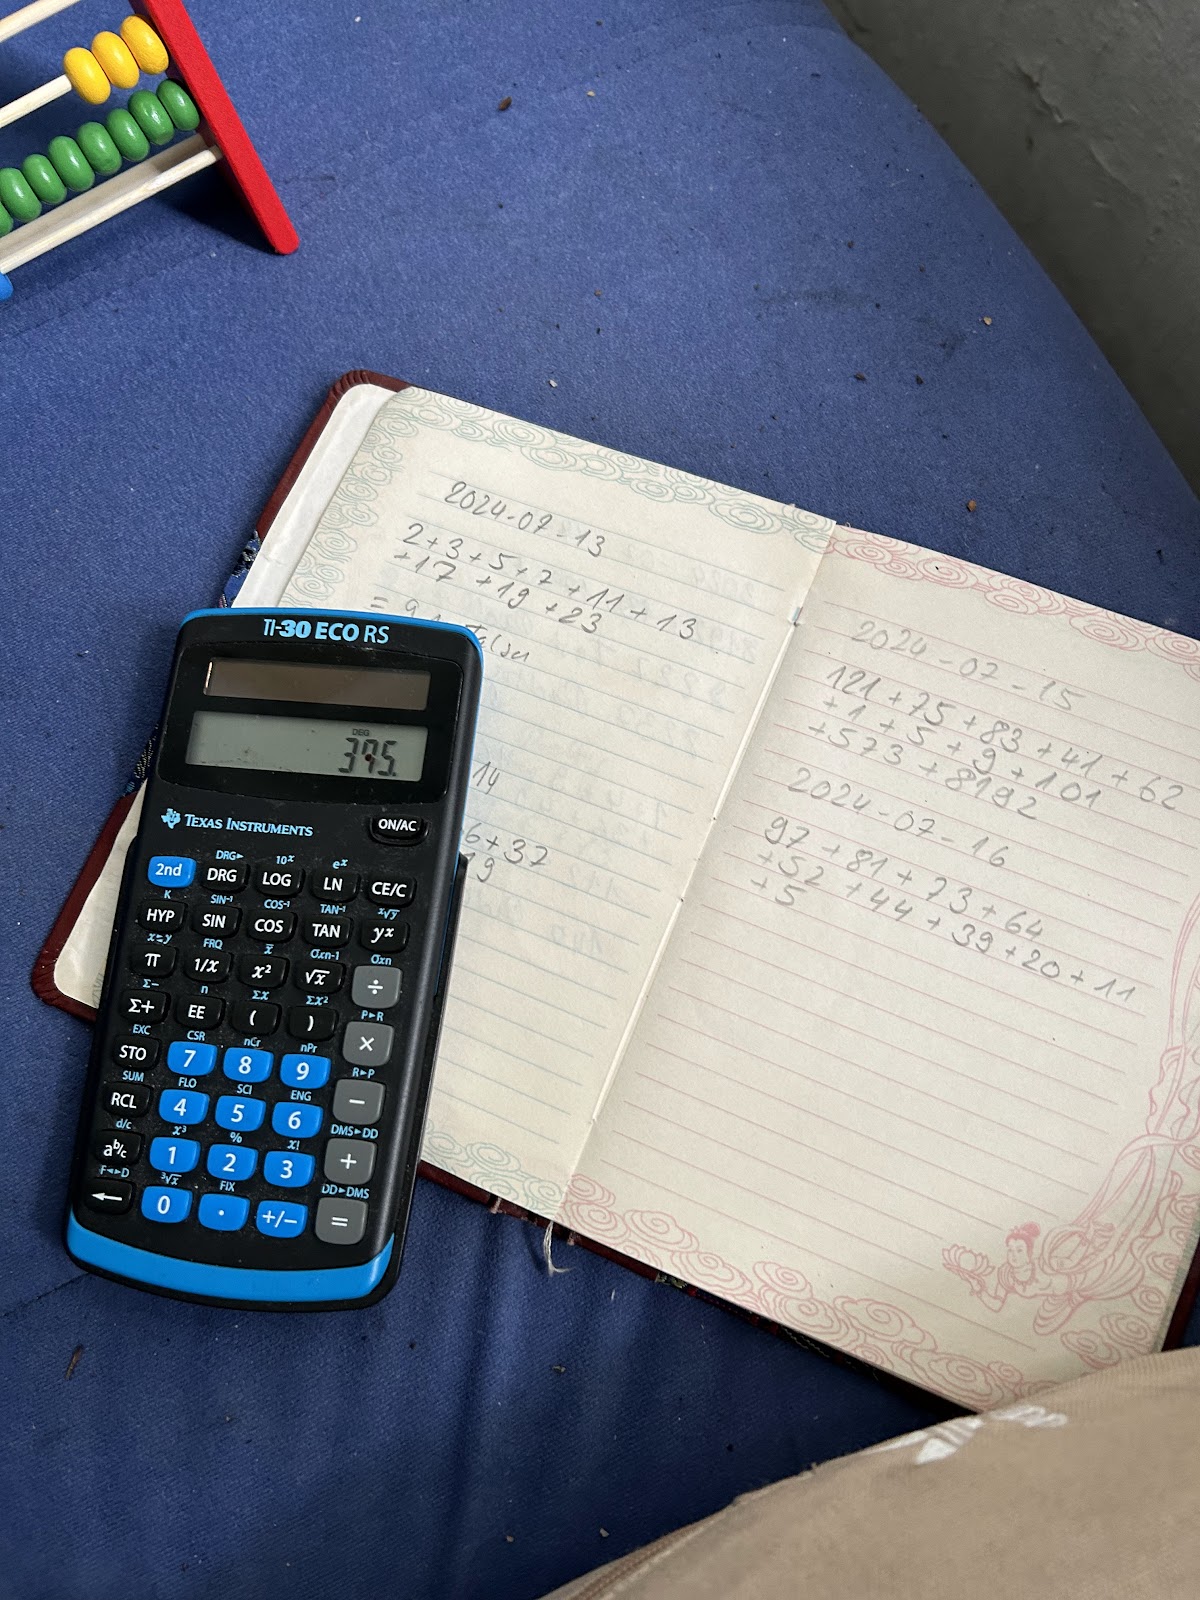 2024-07-13
2+3+5+7+11+13
+17+19+23
=
14
6+37
9
2024-07-15
121+75+83+41+62
+1+5+9+101
+573+8192
2024-07-16
97+81+73+64
+52+44+39+20+11
+5
TI-30 ECO RS
DEG
395.
TEXAS INSTRUMENTS
ON/AC
DRG▸ 10ˣ eˣ
2nd DRG LOG LN CE/C
K SIN⁻¹ COS⁻¹ TAN⁻¹ ˣ√y
HYP SIN COS TAN yˣ
x⇄y FRQ x̅ σxn-1 σxn
π 1/x x² √x ÷
Σ− n Σx Σx² P▸R
Σ+ EE ( ) ×
EXC CSR nCr nPr R▸P
STO 7 8 9 −
SUM FLO SCI ENG DMS▸DD
RCL 4 5 6 +
d/c x³ % x! DD▸DMS
aᵇ/c 1 2 3 =
F◂▸D ³√x FIX
← 0 . +/−